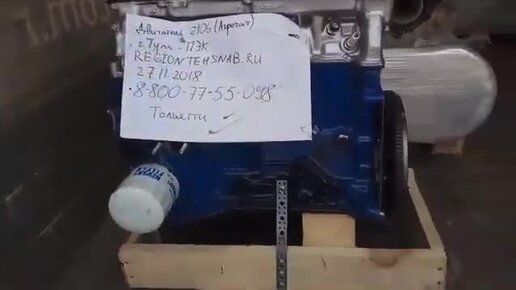 Двигатель 2106 (Агрегат)
г. Тула - ПЭК
REGIONTEHSNAB.RU
27.11.2018
8-800-77-55-098
Тольятти